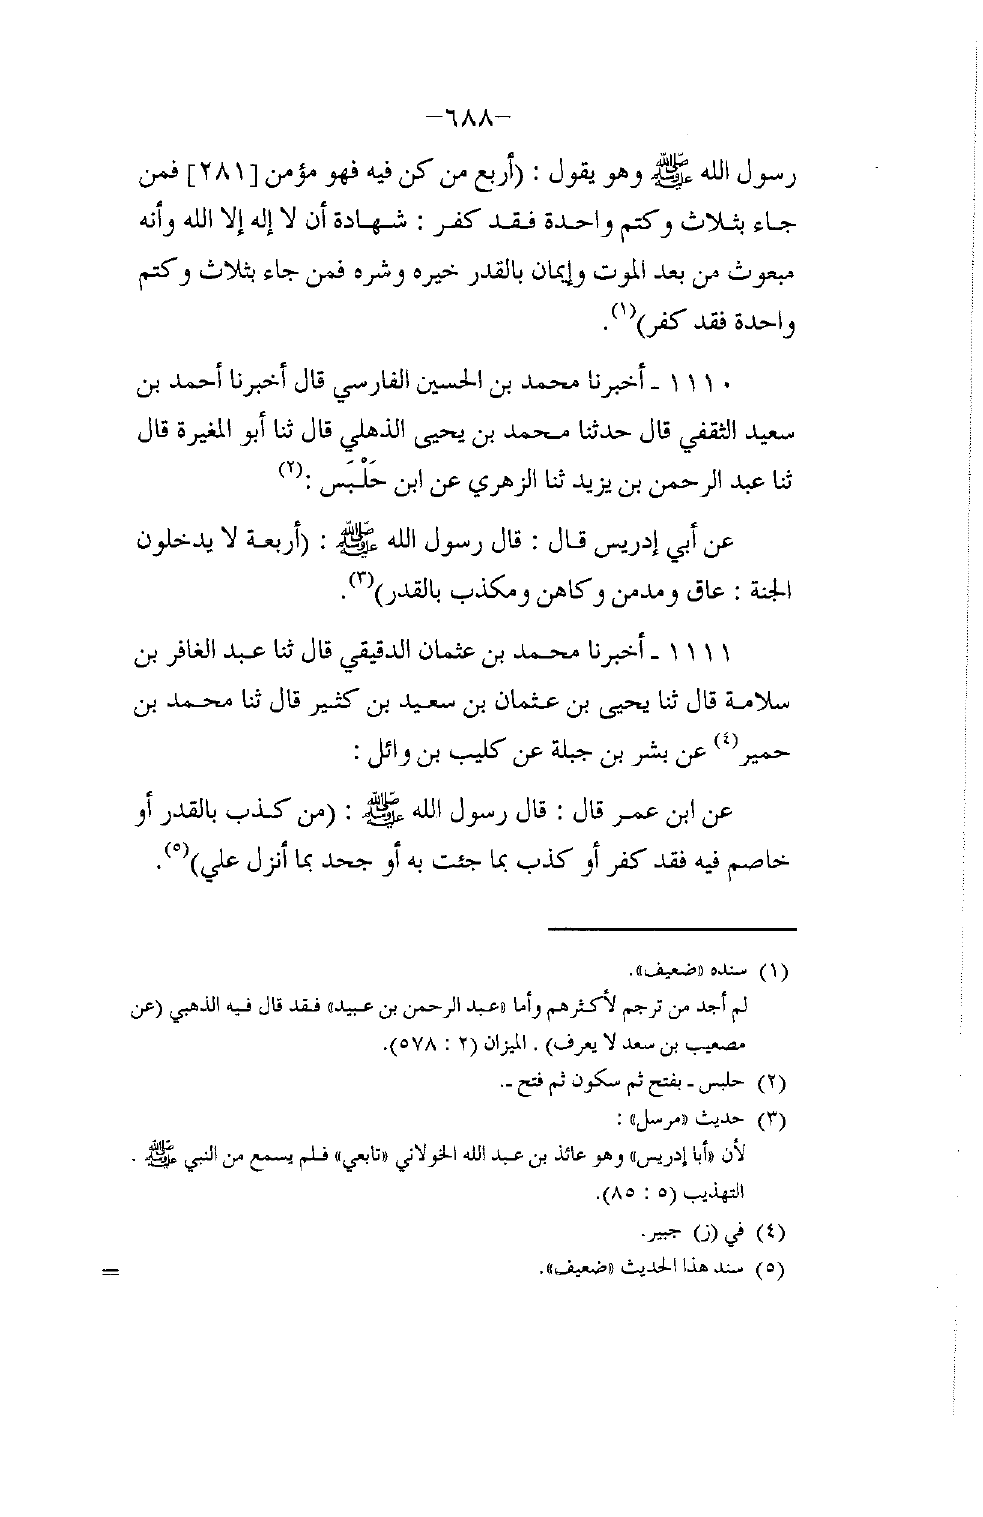 -٦٨٨-
رسول الله ﷺ وهو يقول : (أربع من كن فيه فهو مؤمن [٢٨١] فمن
جاء بثلاث وكتم واحدة فقد كفر : شهادة أن لا إله إلا الله وأنه
مبعوث من بعد الموت وإيمان بالقدر خيره وشره فمن جاء بثلاث وكتم
واحدة فقد كفر)(١).
١١١٠ - أخبرنا محمد بن الحسين الفارسي قال أخبرنا أحمد بن
سعيد الثقفي قال حدثنا محمد بن يحيى الذهلي قال ثنا أبو المغيرة قال
ثنا عبد الرحمن بن يزيد ثنا الزهري عن ابن حَلْبَس :(٢)
عن أبي إدريس قال : قال رسول الله ﷺ : (أربعة لا يدخلون
الجنة : عاق ومدمن وكاهن ومكذب بالقدر)(٣).
١١١١ - أخبرنا محمد بن عثمان الدقيقي قال ثنا عبد الغافر بن
سلامة قال ثنا يحيى بن عثمان بن سعيد بن كثير قال ثنا محمد بن
حمير(٤) عن بشر بن جبلة عن كليب بن وائل :
عن ابن عمر قال : قال رسول الله ﷺ : (من كذب بالقدر أو
خاصم فيه فقد كفر أو كذب بما جئت به أو جحد بما أنزل علي)(٥).
(١) سنده «ضعيف».
لم أجد من ترجم لأكثرهم وأما «عبد الرحمن بن عبيد» فقد قال فيه الذهبي (عن
مصعيب بن سعد لا يعرف) . الميزان (٢ : ٥٧٨).
(٢) حلبس - بفتح ثم سكون ثم فتح -.
(٣) حديث «مرسل» :
لأن «أبا إدريس» وهو عائذ بن عبد الله الخولاني «تابعي» فلم يسمع من النبي ﷺ .
التهذيب (٥ : ٨٥).
(٤) في (ز) جبير.
(٥) سند هذا الحديث «ضعيف». =